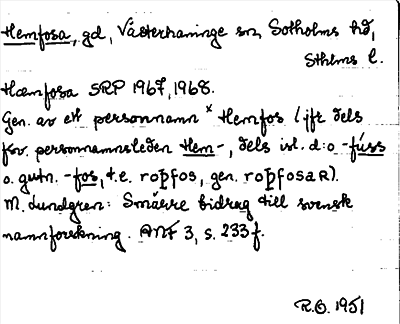 Hemfosa, gd, Västerhaninge sn, Sotholms hd,
Sthlms l.
Hæmfosa SRP 1967, 1968.
Gen. av ett personnamn *Hemfos (jfr dels
fsv. personnamnsleden Hem-, dels isl. d:o -fúss
o. gutn. -fos, t.e. roþfos, gen. roþfosaR).
M. Lundgren: Smärre bidrag till svensk
namnforskning. ANF 3, s. 233 f.
R.O. 1951